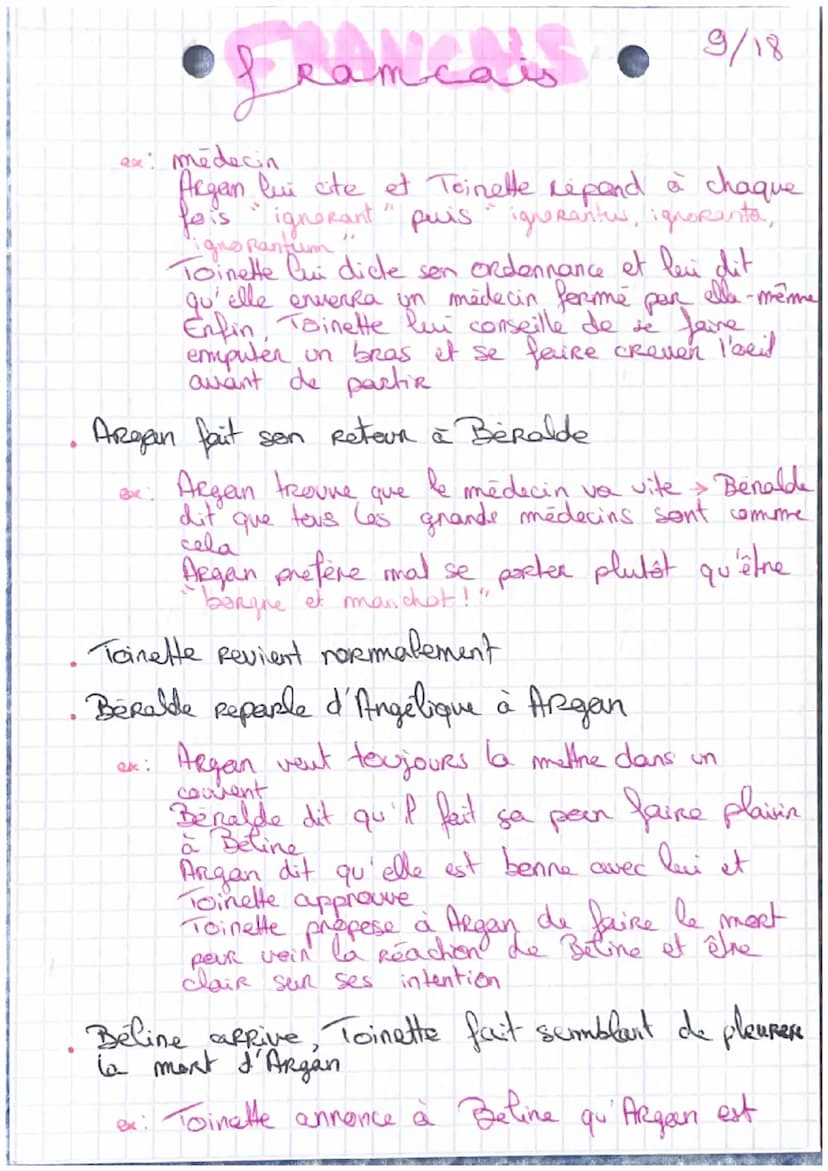 FRANCAIS
francais
9/18
ex: médecin
Argan lui cite et Toinette répond à chaque
fois "ignorant" puis "ignorantus, ignoranta,
ignorantum"
Toinette lui dicte son ordonnance et lui dit
qu'elle enverra un médecin formé par elle-même
Enfin, Toinette lui conseille de se faire
emputer un bras et se faire crever l'oeil
avant de partir
• Argan fait son retour à Béralde
ex: Argan trouve que le médecin va vite → Béralde
dit que tous les grands médecins sont comme
cela
Argan préfère mal se porter plutôt qu'être
"borgne et manchot!"
• Toinette revient normalement
• Béralde reparle d'Angélique à Argan
ex: Argan veut toujours la mettre dans un
couvent
Béralde dit qu'il fait ça pour faire plaisir
à Béline
Argan dit qu'elle est bonne avec lui et
Toinette approuve
Toinette propose à Argan de faire le mort
pour voir la réaction de Béline et être
clair sur ses intention
• Béline arrive, Toinette fait semblant de pleurer
la mort d'Argan
ex: Toinette annonce à Béline qu'Argan est